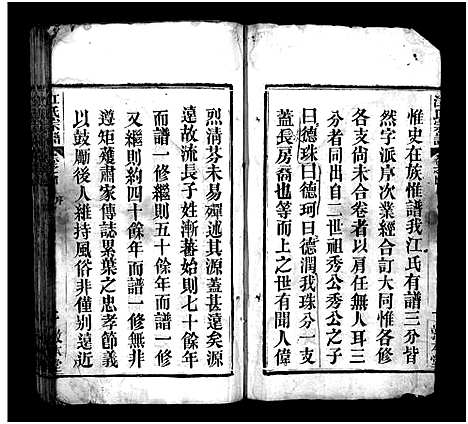 惟史在族惟譜我江氏有譜三分皆
然字派序次業經合訂大同惟各修
各支尚未合卷者以肩任無人耳三
分者同出自二世祖秀公秀公之子
曰德珠曰德珂曰德潤我珠分一支
蓋長房裔也等而上之世有聞人偉
烈清芬未易殫述其源蓋甚遠矣源
遠故流長子姓漸蕃始則七十餘年
而譜一修繼則五十餘年而譜一修
又繼則約四十餘年而譜一修無非
遵矩薙肅家傳誌累葉之忠孝節義
以鼓勵後人維持風俗非僅別遠近
江氏宗譜